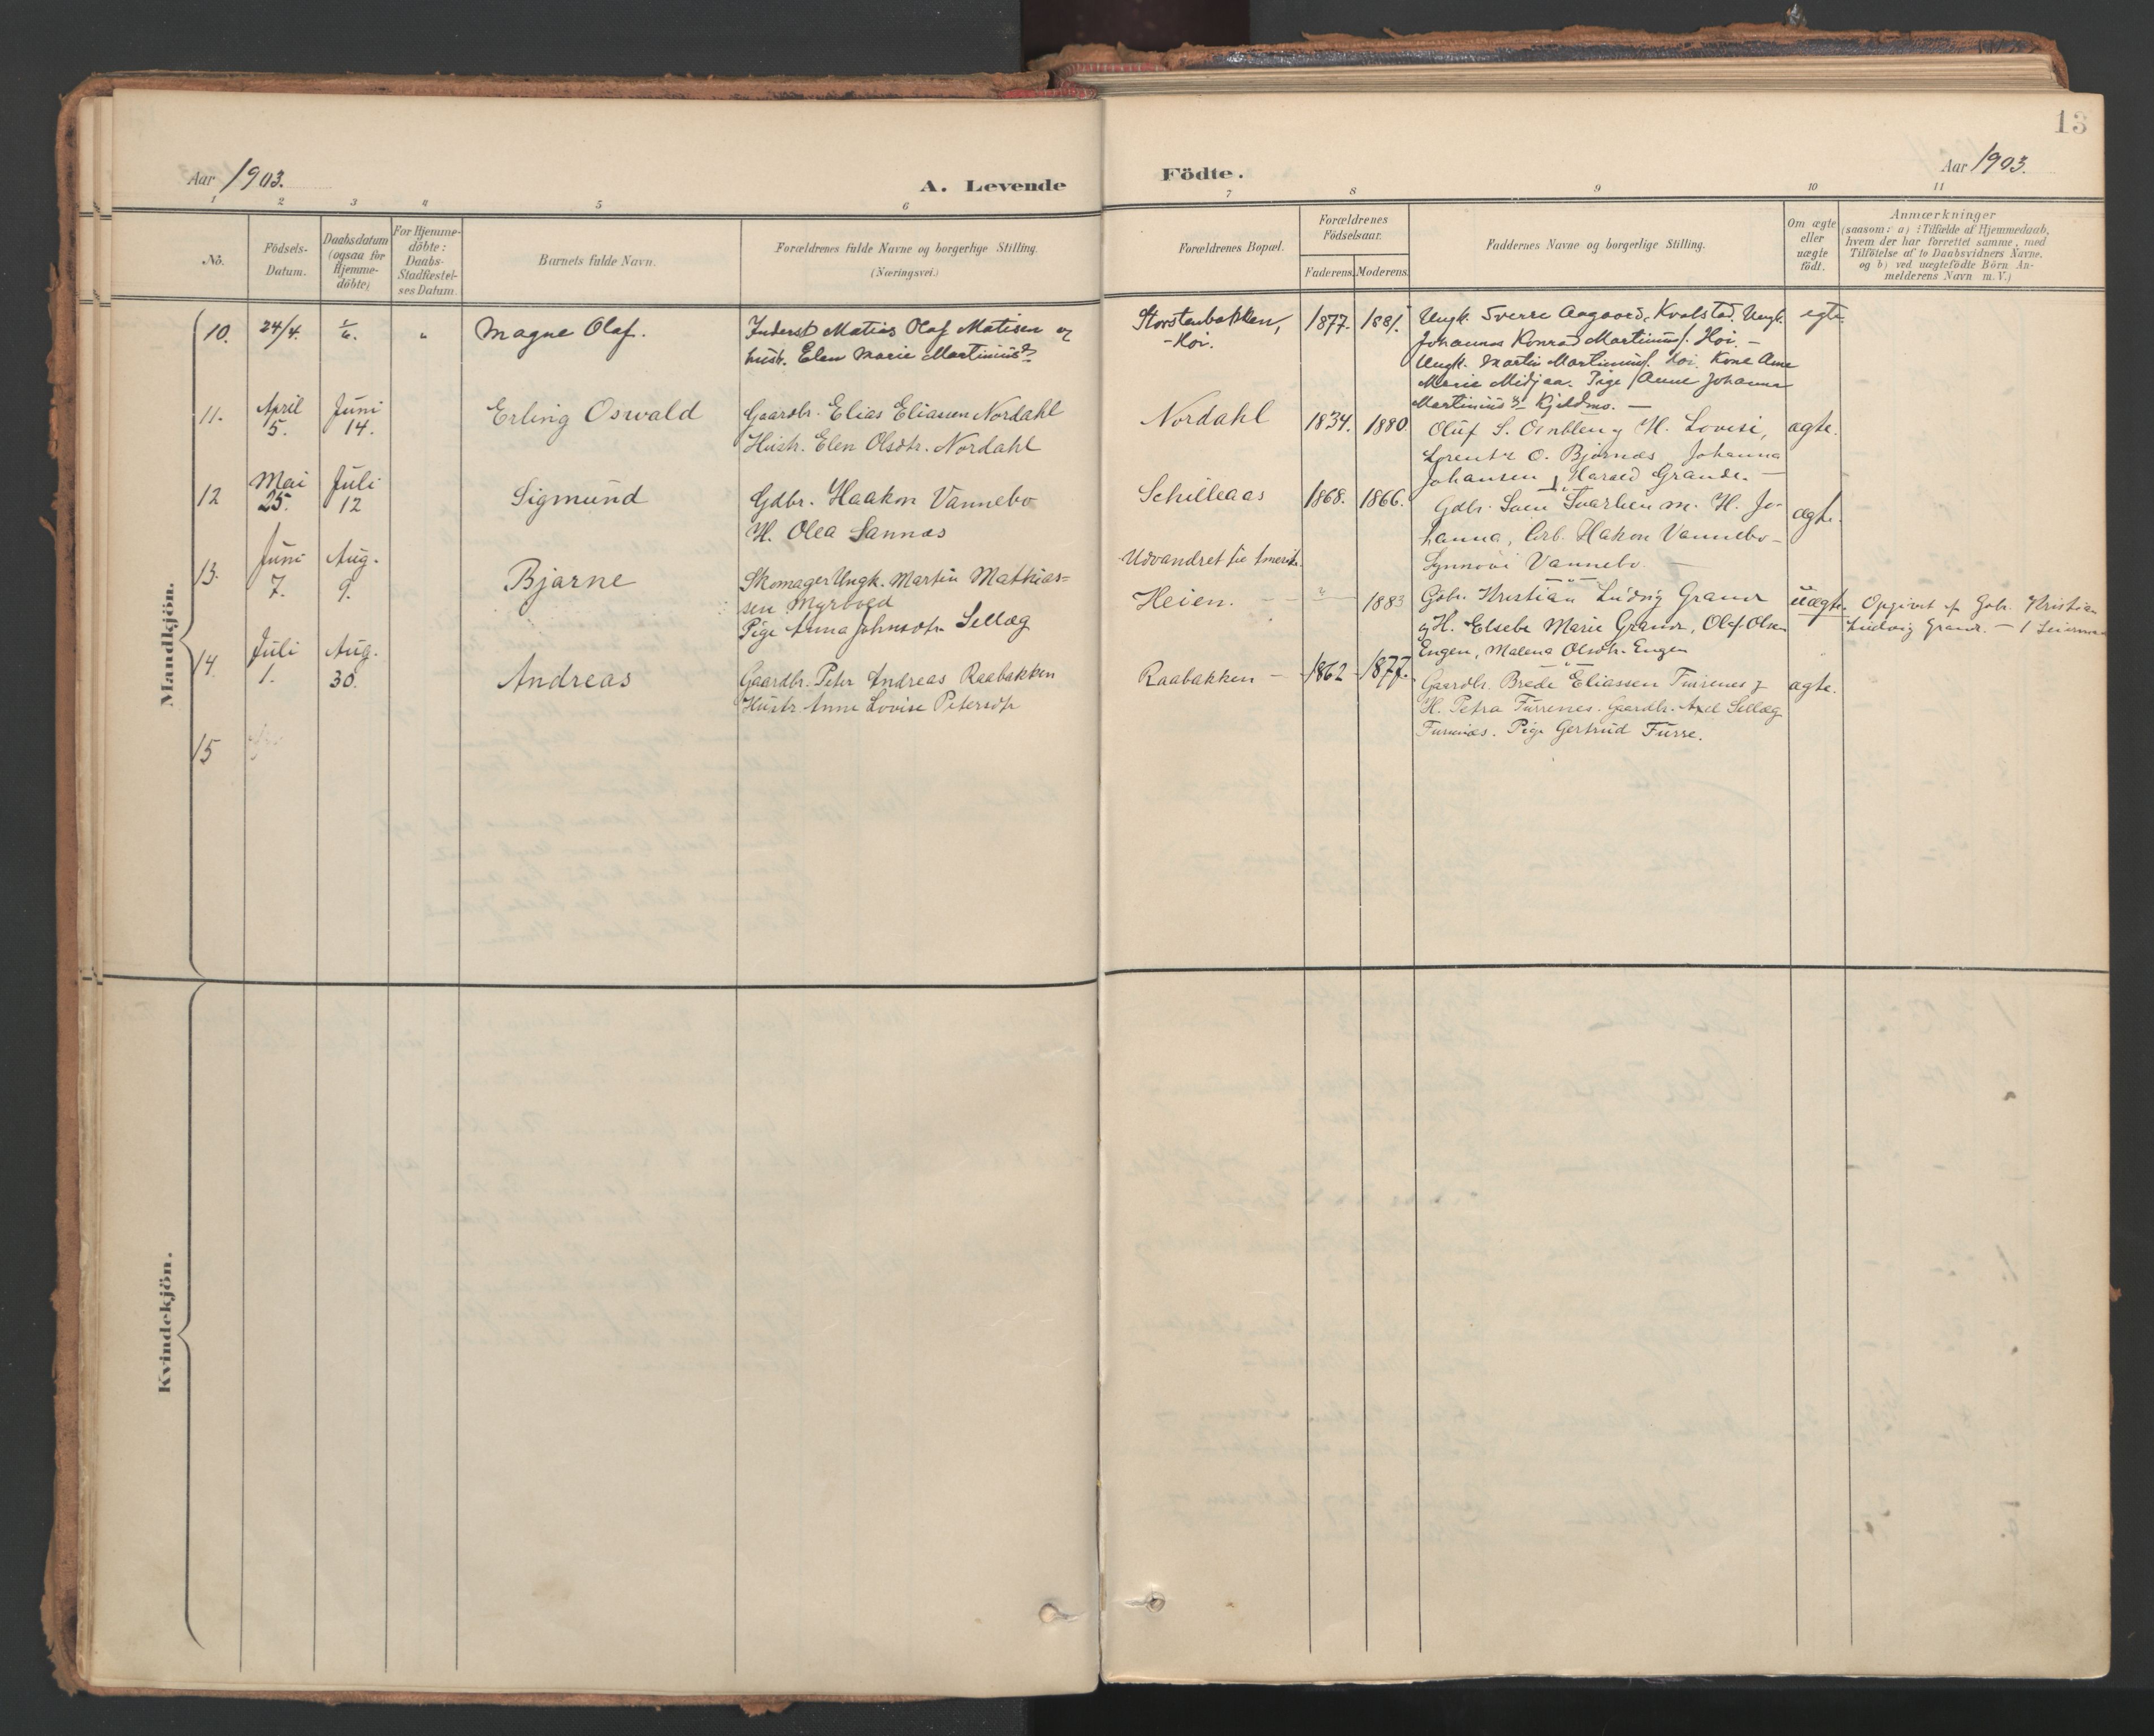 13
Aar 1903.
A. Levende
Födte.
Aar 1903.
1 2 3 4 5 6 7 8 9 10 11
No.
Födsels-
Datum.
Daabsdatum
(ogsaa for
Hjemme-
döbte)
For Hjemme-
döbte:
Daabs-
Stadfæstel-
ses Datum.
Barnets fulde Navn.
Forældrenes fulde Navne og borgerlige Stilling.
(Næringsvei.)
Forældrenes Bopæl.
Forældrenes
Födselsaar.
Faderens. Moderens.
Faddernes Navne og borgerlige Stilling.
Om ægte
eller
uægte
födt.
Anmærkninger
(saasom: a) i Tilfælde af Hjemmedaab,
hvem der har forrettet samme, med
Tilföielse af to Daabsvidners Navne.
og b) ved uægtefödte Börn An-
melderens Navn m. V.)
Mandkjön.
10. 24/4. 1/6. " Magne Olaf.
Inderst Matias Olaf Matisen og
hustr. Elen Marie Martinusd.
Storstenbakken,
-Hoi.
1877. 1881.
Ungk. Sverre Aagaard, Kvalstad. Ungk.
Johannes Konrad Martinus. Hoi. -
Ungk. Martin Martinus. Hoi. Kone Ane
Marie Midjaa. Pige Anne Johanna
Martinusd. Kjeldmo. -
egte.
11. April 5. Juni 14. Erling Oswald
Gaardbr. Elias Eliassen Nordahl
Hustr. Elen Olsdtr. Nordahl
Nordahl
1834. 1880
Oluf S. og H. Lovise,
Lorents O. Bjørnes, Johanna
Johansen, Harald Grande. -
ægte.
12 Mai 25. Juli 12 Sigmund
Gdbr. Haakon Vannebo
H. Olea Sannes
Schilleaas
1868. 1866.
Gdbr. Svein m. H. Jo-
hanna, Arb. Hakon Vannebo-
Synnövi Vannebo -
ægte.
13. Juni 7. Aug. 9. Bjarne
Skomager Ungk. Martin Mathias-
sen Myrvold
Pige Anna Johnsdtr. Sellæg
Udvandret til Amerika.
Heien. - 1883
Gdbr. Kristian Ludvig Grande
og H. Elsebe Marie Grande, Olaf Olsen
Engen, Malena Olsdtr. Engen
uægte.
Opgivet af Gdbr. Kristian
Ludvig Grande. - 1
14. Juli 1. Aug. 30. Andreas
Gaardbr. Peter Andreas Raabakken
Hustr. Anne Lovise Petersdtr
Raabakken -
1862 1877.
Gaardbr. Brede Eliassen Furrenes og
H. Petra Furrenes. Gaardbr. Axel Sellæg
Furrenes. Pige Gertrud Furre.
ægte.
15
Kvindekjön.